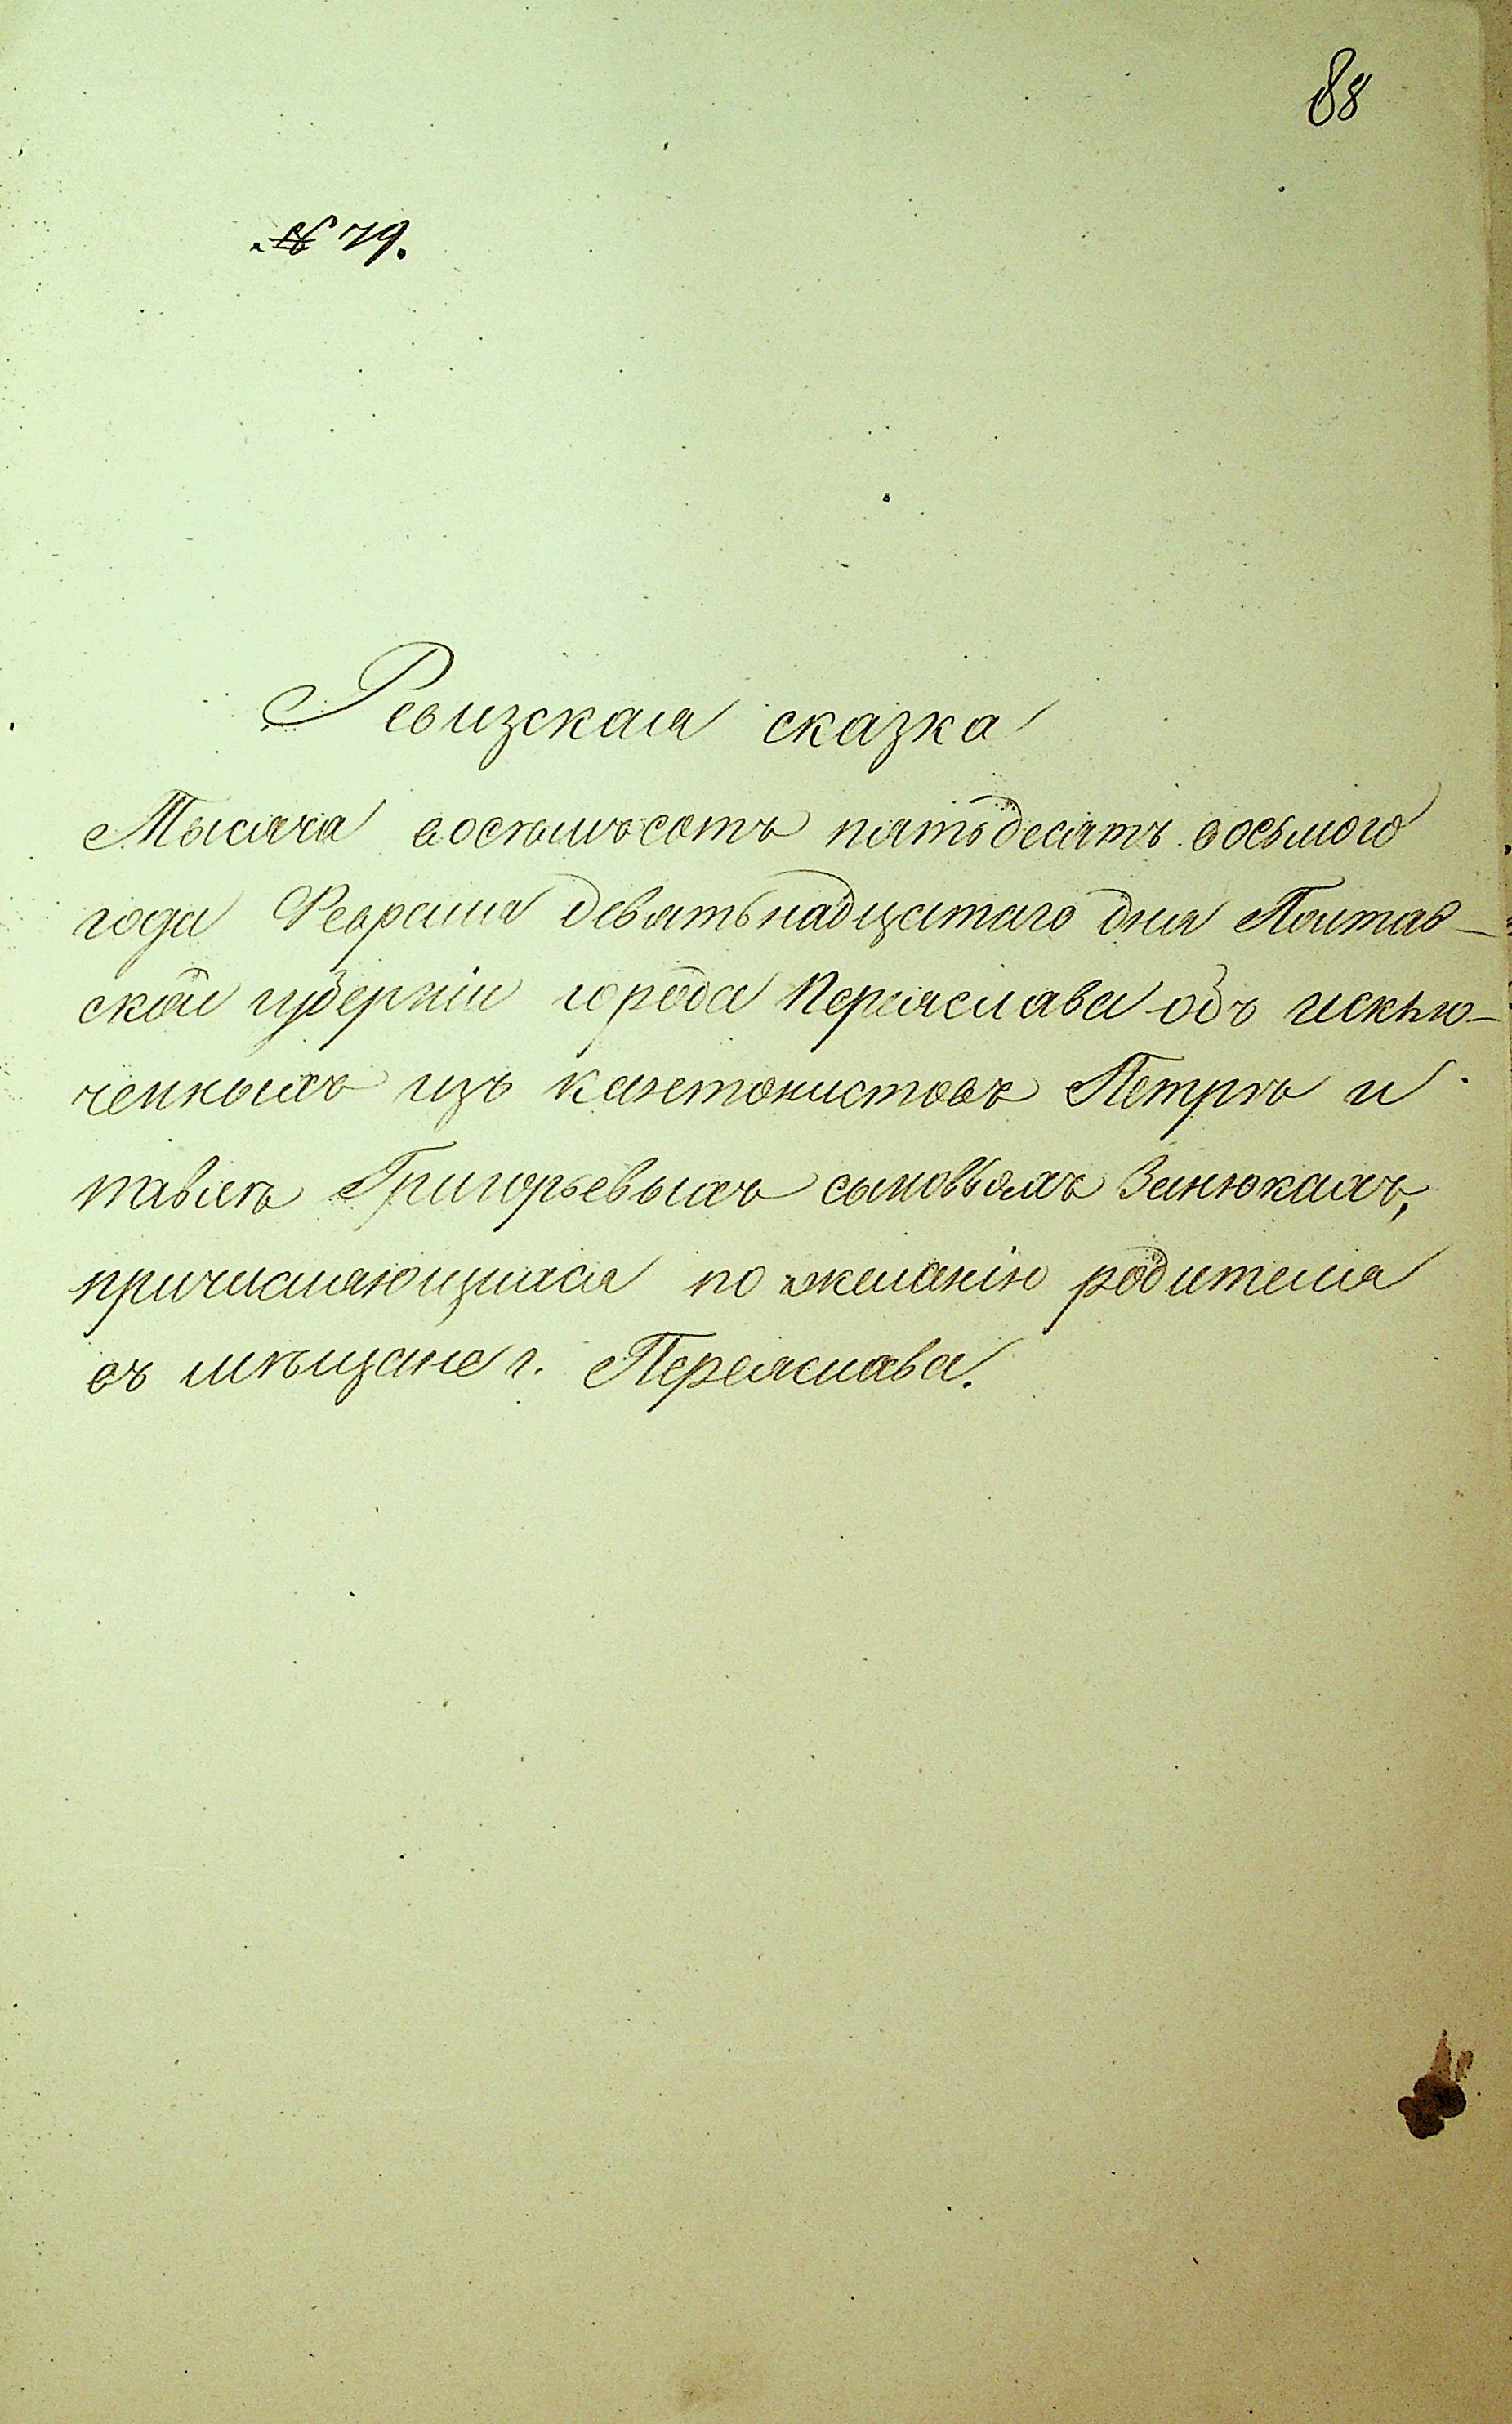 88
№ 79.
Ревизская сказка
Тысяча восемьсотъ пятьдесятъ восьмого
года Февраля девятьнадцатаго дня Полтав-
ской губерніи города Переяслава объ исклю-
ченныхъ изъ кантонистовъ Петрѣ и
Павлѣ Григорьевыхъ сыновьяхъ Занюкахъ,
причисляющихся по желанію родителя
въ мѣщане г. Переяслава.